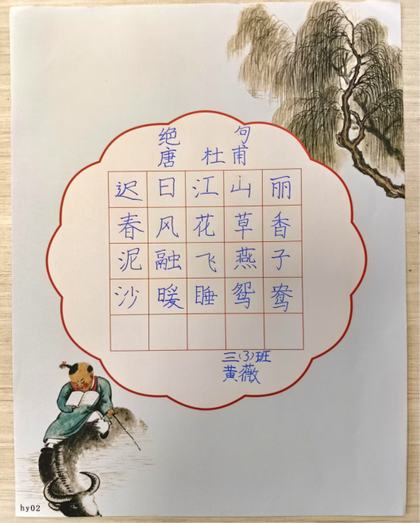 绝句
唐 杜甫
迟日江山丽
春风花草香
泥融飞燕子
沙暖睡鸳鸯
三(3)班
黄薇
hy02